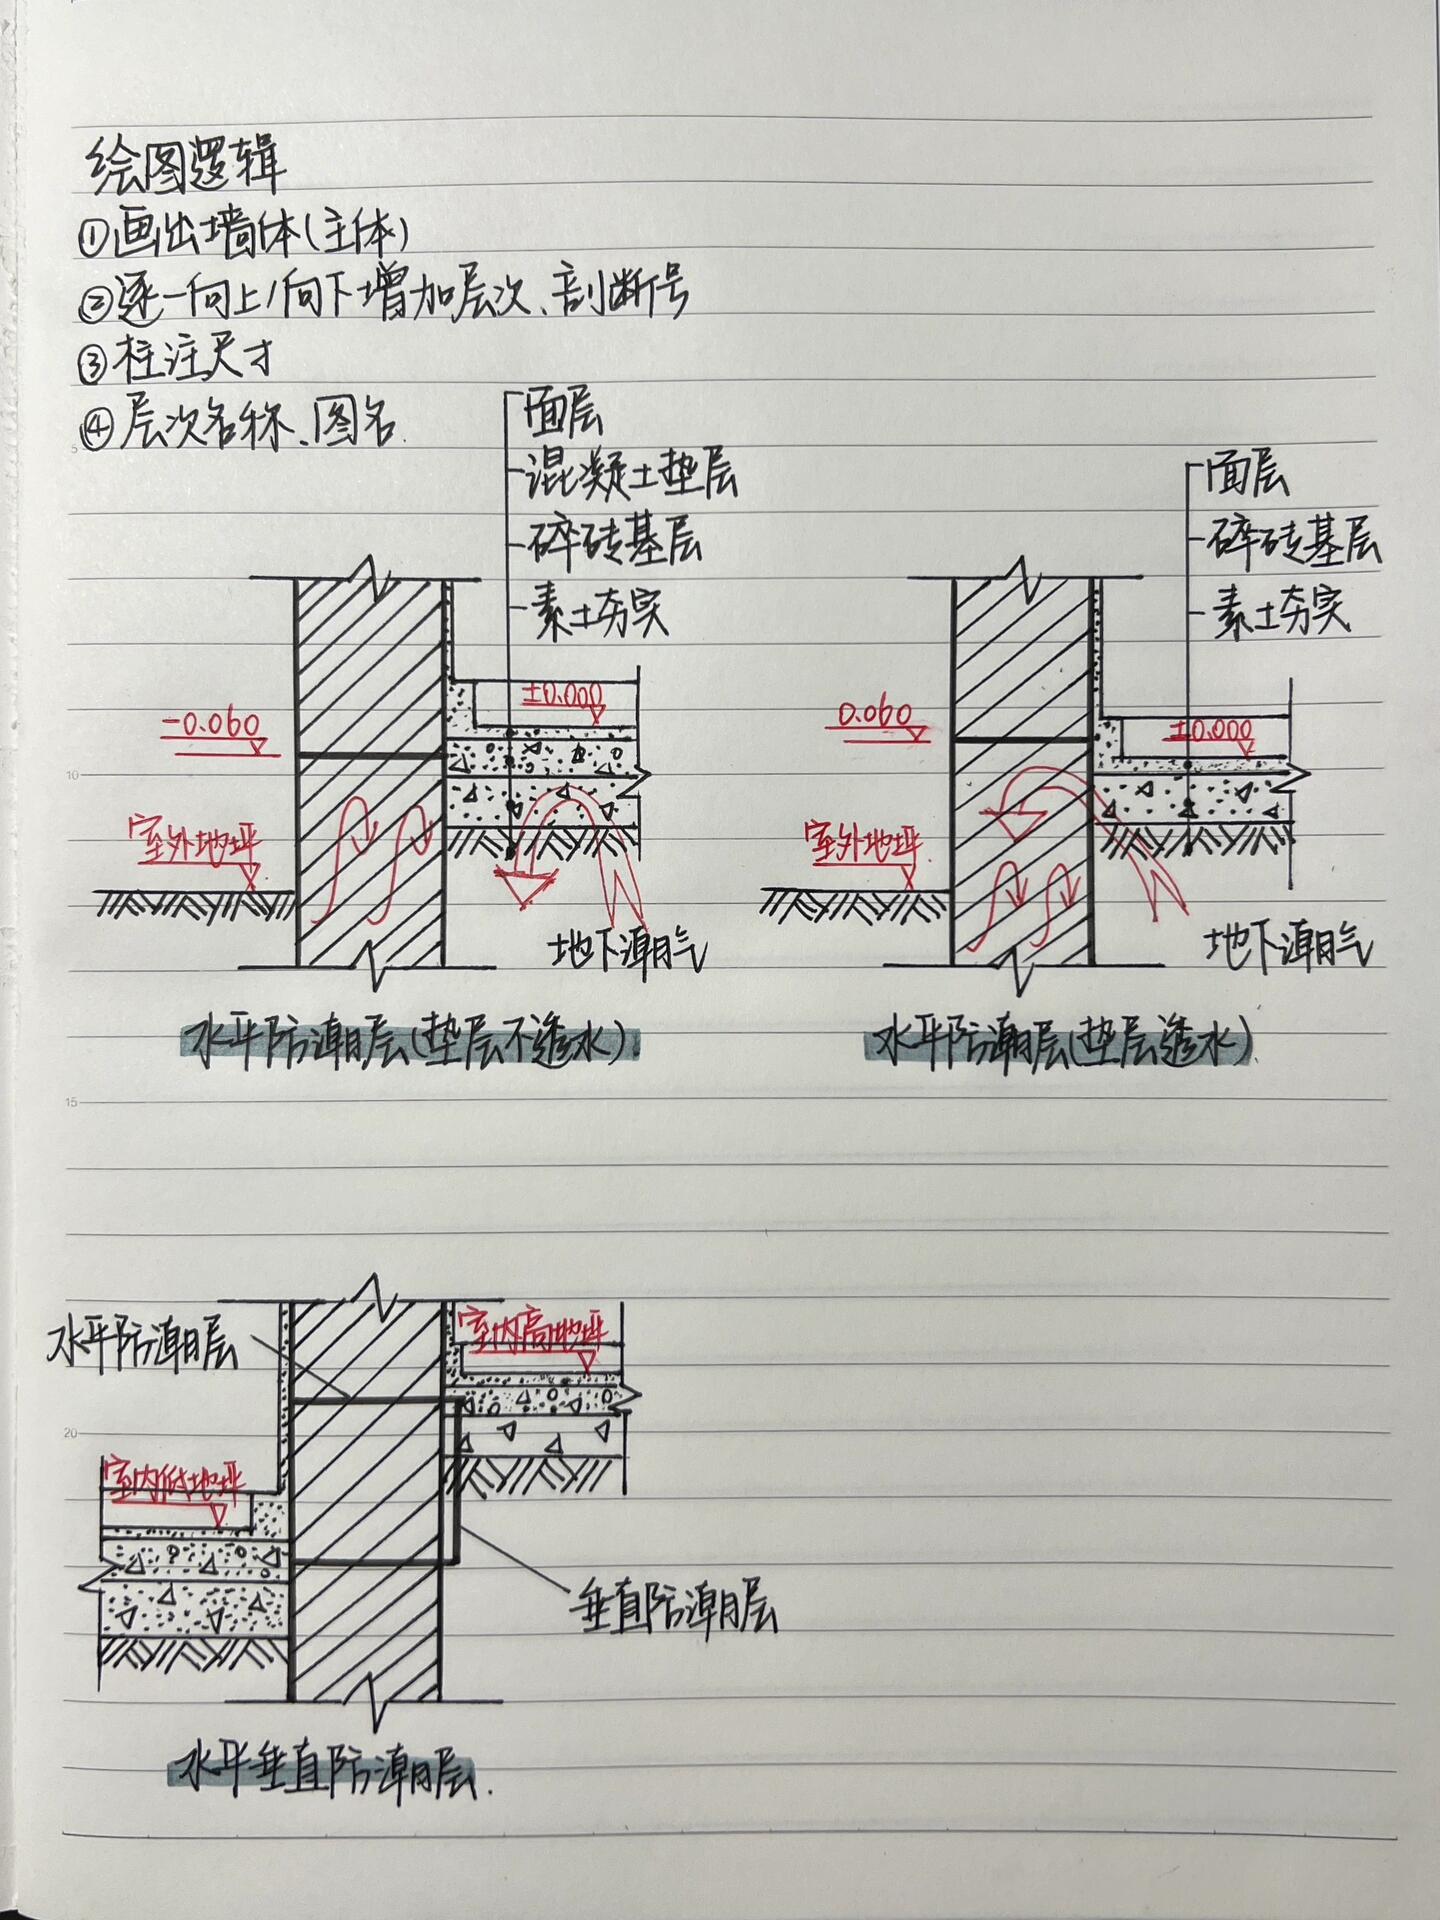 绘图逻辑
①画出墙体(主体)
②逐一向上/向下增加层次、剖断号
③柱注尺寸
④层次名称、图名.
面层
混凝土垫层
碎砖基层
素土夯实
-0.060
±0.000
室外地坪
地下潮气
水平防潮层(垫层不透水).
面层
碎砖基层
素土夯实
0.060
±0.000
室外地坪
地下潮气
水平防潮层(垫层透水).
水平防潮层
室内高地坪
室内低地坪
垂直防潮层
水平垂直防潮层.
5
10
15
20